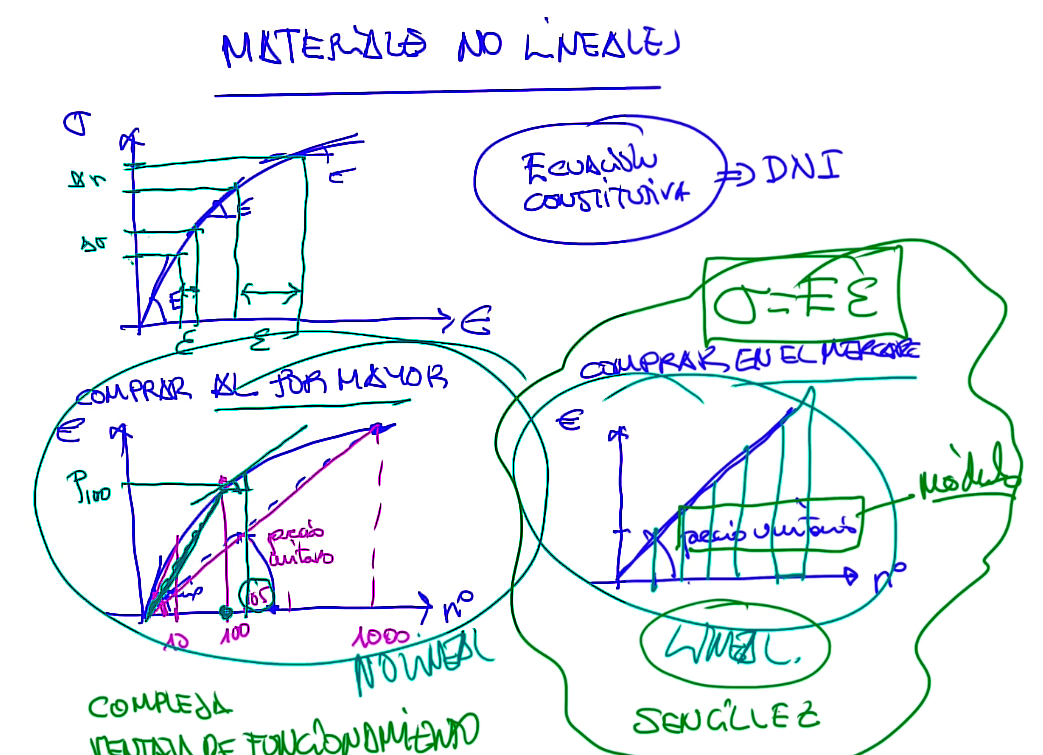 MATERIALES NO LINEALES
σ
Δσ
Δσ
E
E
E
ε
ε
ε
ECUACIÓN
CONSTITUTIVA
⇒ DNI
σ = E ε
COMPRAR AL POR MAYOR
€
P100
precio
unitario
105
nº
10
100
1000
NO LINEAL
COMPRAR EN EL MERCADO
€
precio unitario
módulo
nº
LINEAL.
SENCILLEZ
COMPLEJA
VENTAJA DE FUNCIONAMIENTO